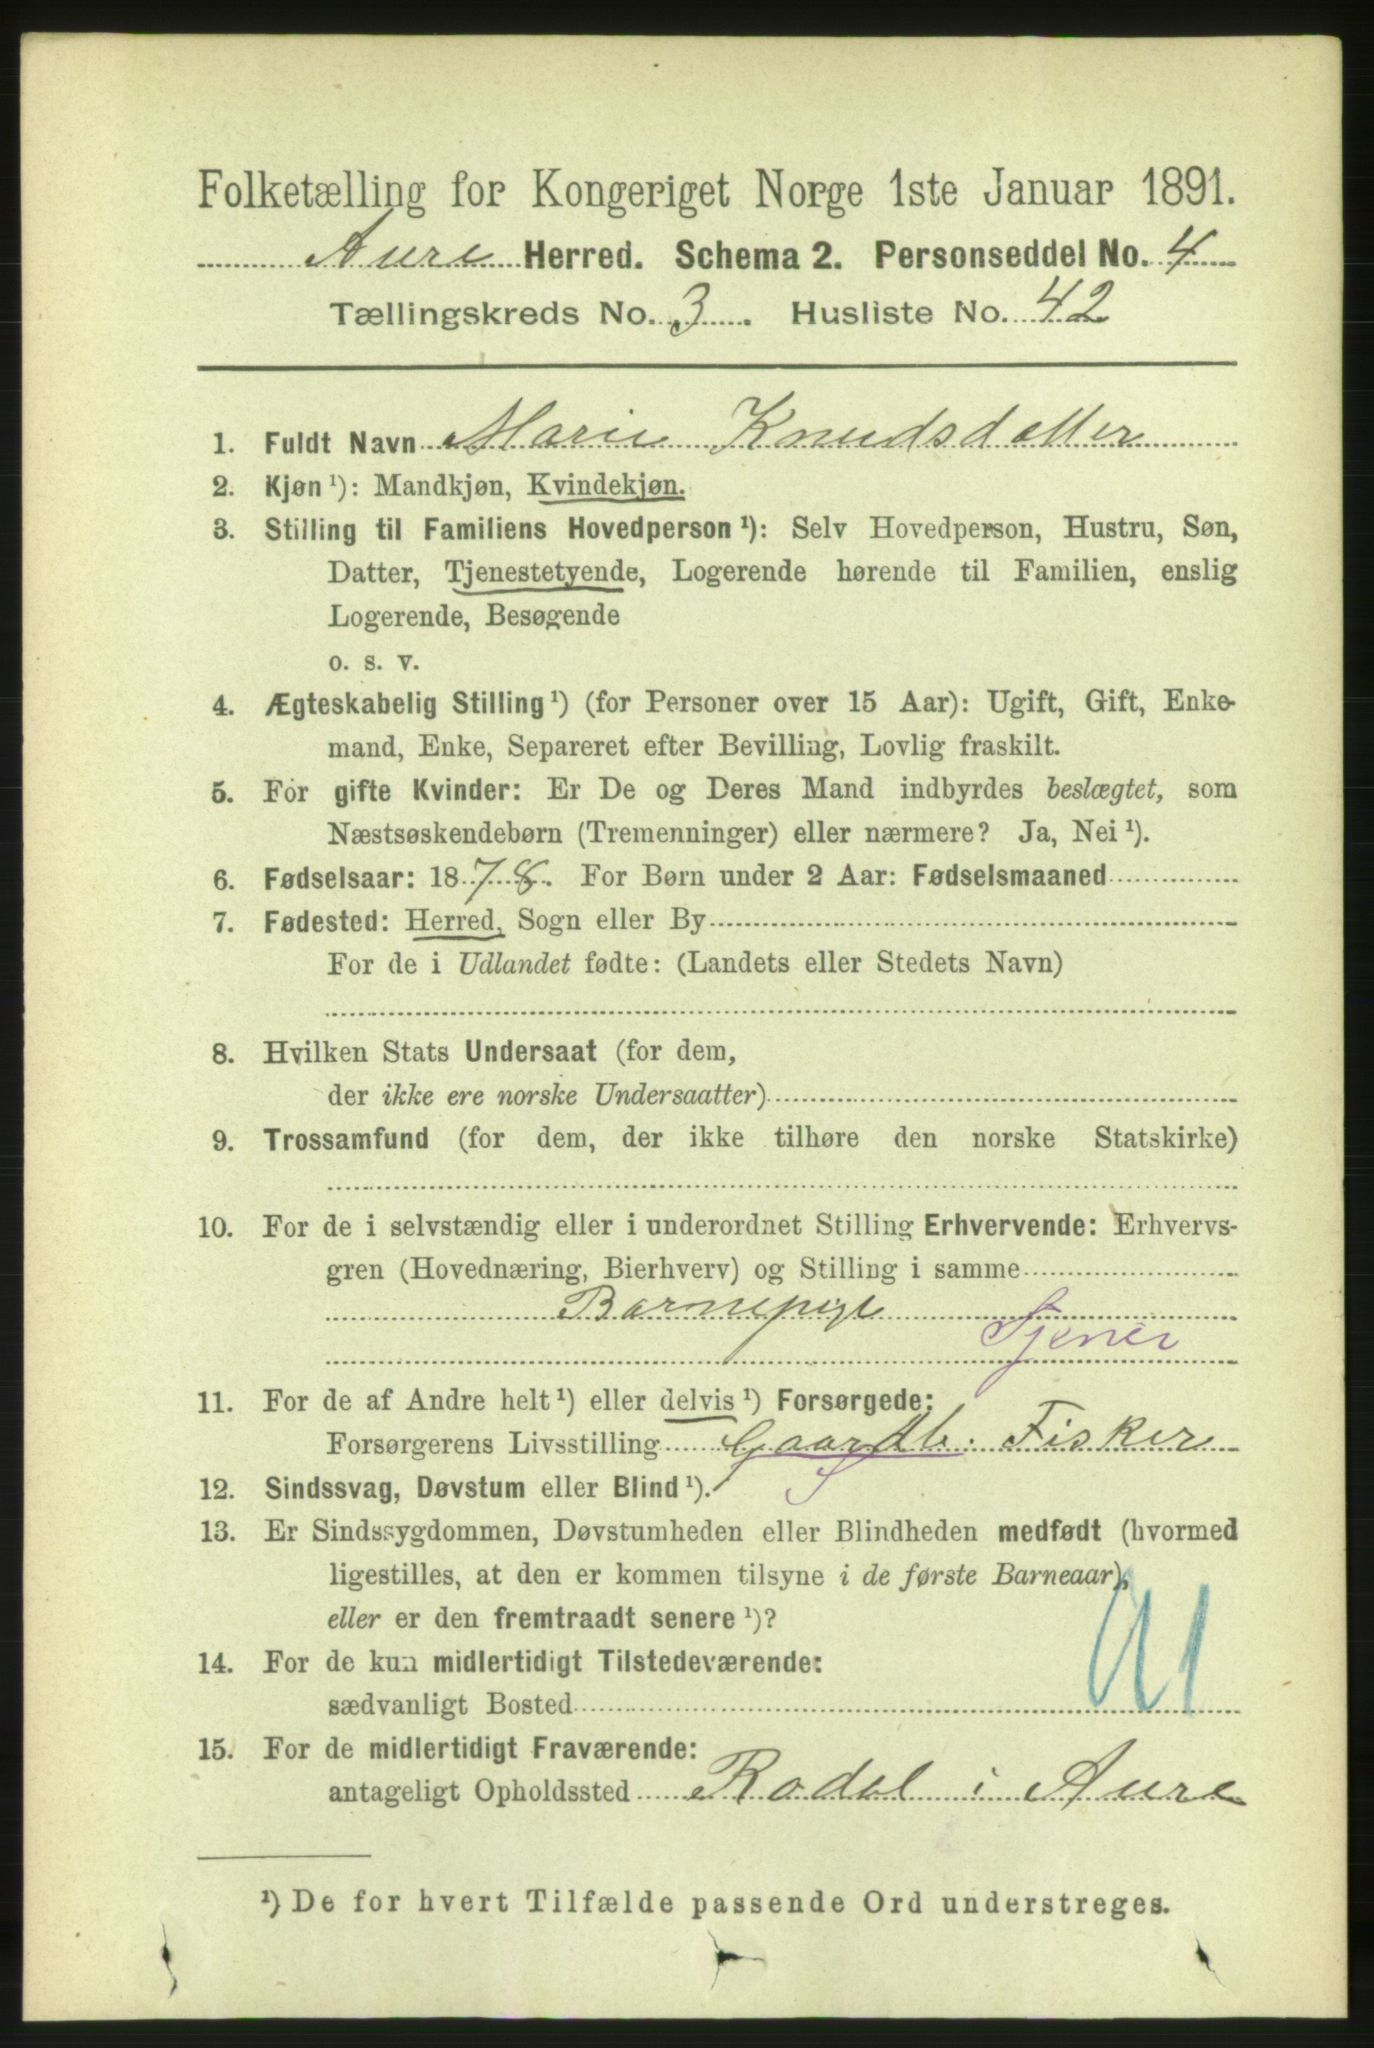 Folketælling for Kongeriget Norge 1ste Januar 1891.
Aure Herred. Schema 2. Personseddel No. 4
Tællingskreds No. 3. Husliste No. 42
1. Fuldt Navn Marie Knudsdatter
2. Kjøn ¹): Mandkjøn, Kvindekjøn.
3. Stilling til Familiens Hovedperson ¹): Selv Hovedperson, Hustru, Søn,
Datter, Tjenestetyende, Logerende hørende til Familien, enslig
Logerende, Besøgende
o. s. v.
4. Ægteskabelig Stilling ¹) (for Personer over 15 Aar): Ugift, Gift, Enke-
mand, Enke, Separeret efter Bevilling, Lovlig fraskilt.
5. For gifte Kvinder: Er De og Deres Mand indbyrdes beslægtet, som
Næstsøskendebørn (Tremenninger) eller nærmere? Ja, Nei ¹).
6. Fødselsaar: 1878. For Børn under 2 Aar: Fødselsmaaned
7. Fødested: Herred, Sogn eller By
For de i Udlandet fødte: (Landets eller Stedets Navn)
8. Hvilken Stats Undersaat (for dem,
der ikke ere norske Undersaatter)
9. Trossamfund (for dem, der ikke tilhøre den norske Statskirke)
10. For de i selvstændig eller i underordnet Stilling Erhvervende: Erhvervs-
gren (Hovednæring, Bierhverv) og Stilling i samme
Barnepige
Tjener
11. For de af Andre helt ¹) eller delvis ¹) Forsørgede:
Forsørgerens Livsstilling Gaardb. Fisker
S
12. Sindssvag, Døvstum eller Blind ¹).
13. Er Sindssygdommen, Døvstumheden eller Blindheden medfødt (hvormed
ligestilles, at den er kommen tilsyne i de første Barneaar),
eller er den fremtraadt senere ¹)?
91
14. For de kun midlertidigt Tilstedeværende:
sædvanligt Bosted
15. For de midlertidigt Fraværende:
antageligt Opholdssted Rodal i Aure
¹) De for hvert Tilfælde passende Ord understreges.